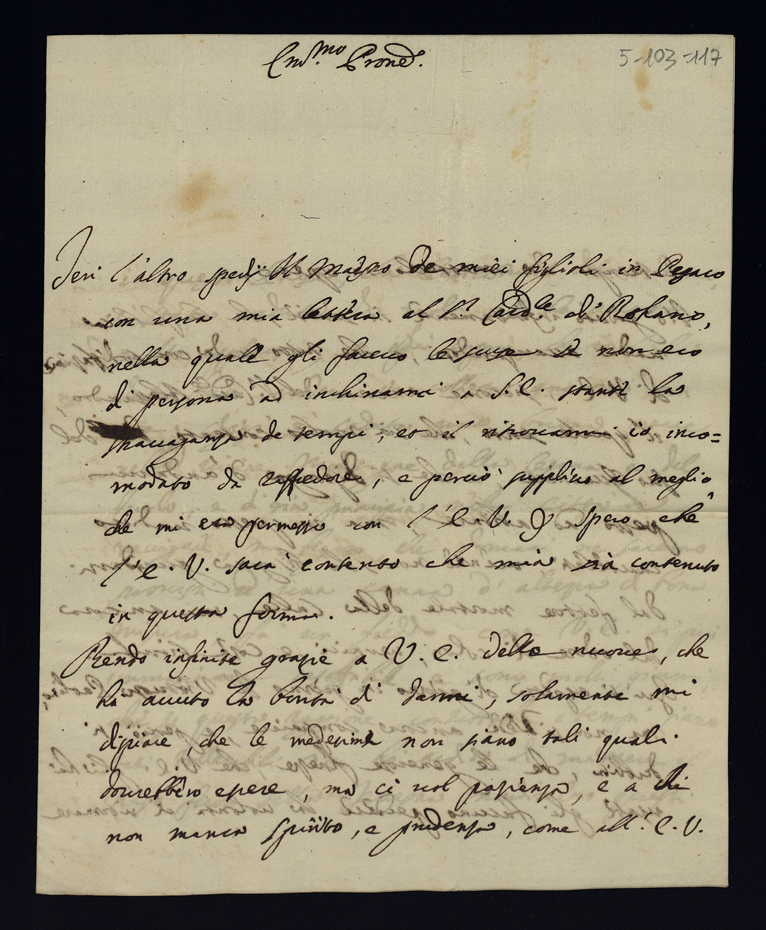 Em.mo Prone
5-103-117
Jeri l'altro spedij il Mag:re de miei figlioli in Pesaro
con una mia lettera al S.r Card.le di Rohano,
nella quale gli faccio le scuse se non ero
di persona ad inchinarmi a S.E. stante la
stravaganza de tempi, et il ritrovarmi io inco=
modato da rafredore, e perciò supplico al meglio
che mi era permesso con l'E.V. spero che
l'E.V. sarà contento che mia contenuto
in questa forma.
Rendo infinite grazie a V.E. delle nuove, che
ha avuto la bontà di darmi, solamente mi
dispiace, che le medesime non siano tali quali
dovrebbero essere, ma ci vol pazienza, e a chi
non manca spirito, e prudenza, come all'E.V.